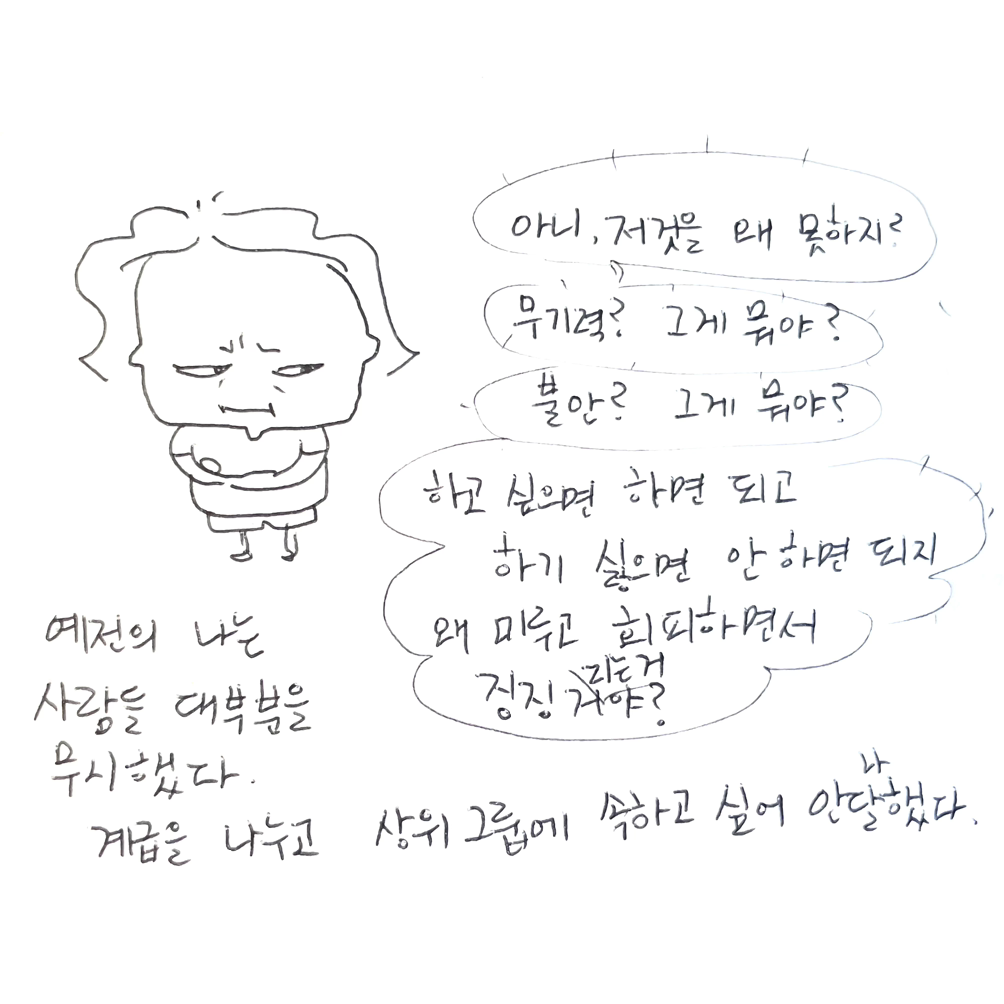 아니, 저것을 왜 못하지?
무기력? 그게 뭐야?
불안? 그게 뭐야?
하고 싶으면 하면 되고
하기 싫으면 안 하면 되지
왜 미루고 회피하면서
징징 리는거 거야?
예전의 나는
사람들 대부분을
무시했다.
계급을 나누고 상위 그룹에 속하고 싶어 안달나했다.